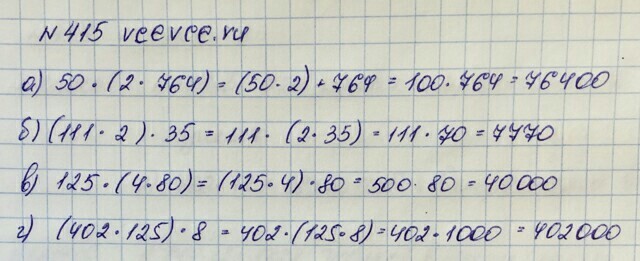 № 415 vcevce.ru
а) 50 · (2 · 764) = (50 · 2) · 764 = 100 · 764 = 76400
б) (111 · 2) · 35 = 111 · (2 · 35) = 111 · 70 = 7770
в) 125 · (4 · 80) = (125 · 4) · 80 = 500 · 80 = 40000
г) (402 · 125) · 8 = 402 · (125 · 8) = 402 · 1000 = 402000